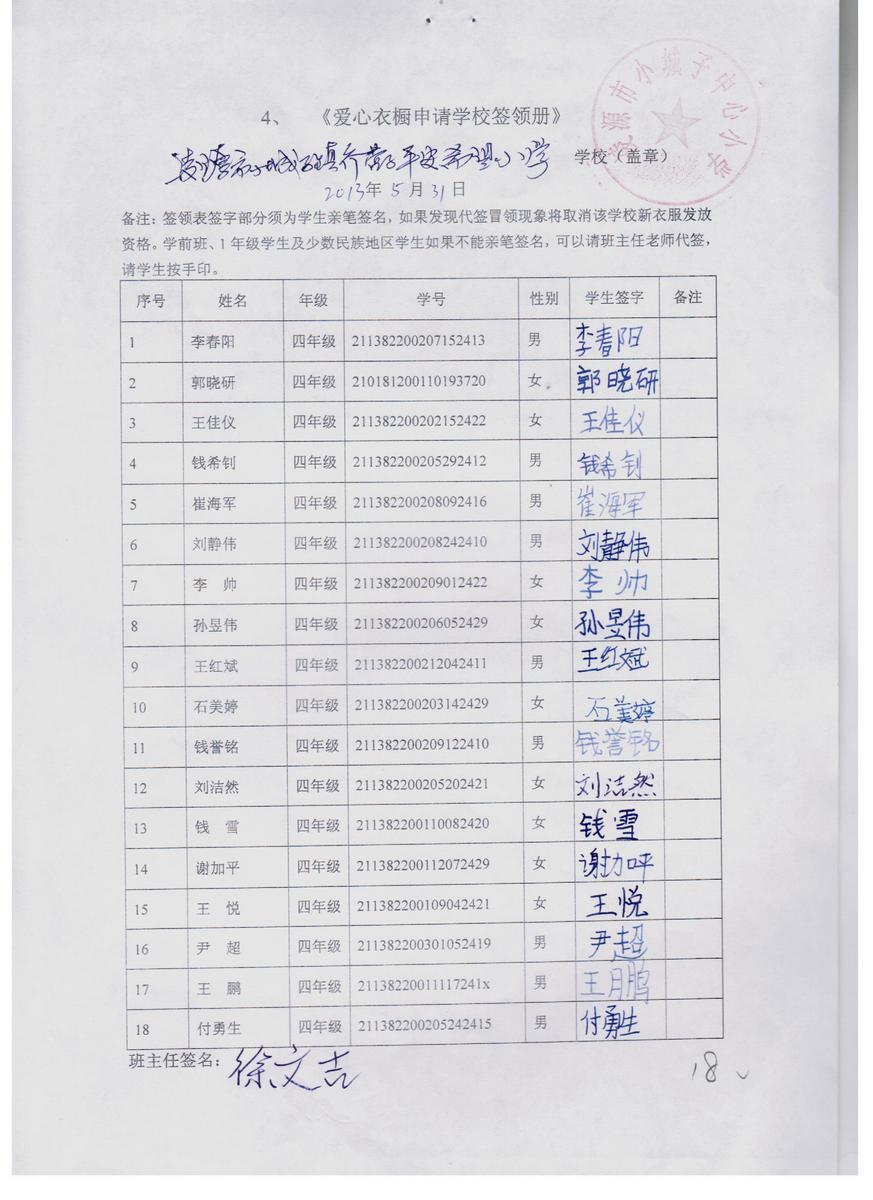 4、 《爱心衣橱申请学校签领册》
学校（盖章）
凌源市小城子中心小学
2013年 5 月 31 日
备注：签领表签字部分须为学生亲笔签名，如果发现代签冒领现象将取消该学校新衣服发放
资格。学前班、1 年级学生及少数民族地区学生如果不能亲笔签名，可以请班主任老师代签，
请学生按手印。
序号 姓名 年级 学号 性别 学生签字 备注
1 李春阳 四年级 211382200207152413 男 李春阳
2 郭晓研 四年级 210181200110193720 女 郭晓研
3 王佳仪 四年级 211382200202152422 女 王佳仪
4 钱希钊 四年级 211382200205292412 男 钱希钊
5 崔海军 四年级 211382200208092416 男 崔海军
6 刘静伟 四年级 211382200208242410 男 刘静伟
7 李 帅 四年级 211382200209012422 女 李帅
8 孙昱伟 四年级 211382200206052429 女 孙昱伟
9 王红斌 四年级 211382200212042411 男 王红斌
10 石美婷 四年级 211382200203142429 女 石美婷
11 钱誉铭 四年级 211382200209122410 男 钱誉铭
12 刘洁然 四年级 211382200205202421 女 刘洁然
13 钱 雪 四年级 211382200110082420 女 钱雪
14 谢加平 四年级 211382200112072429 女 谢加平
15 王 悦 四年级 211382200109042421 女 王悦
16 尹 超 四年级 211382200301052419 男 尹超
17 王 鹏 四年级 21138220011117241x 男 王鹏
18 付勇生 四年级 211382200205242415 男 付勇生
班主任签名：徐文吉
18